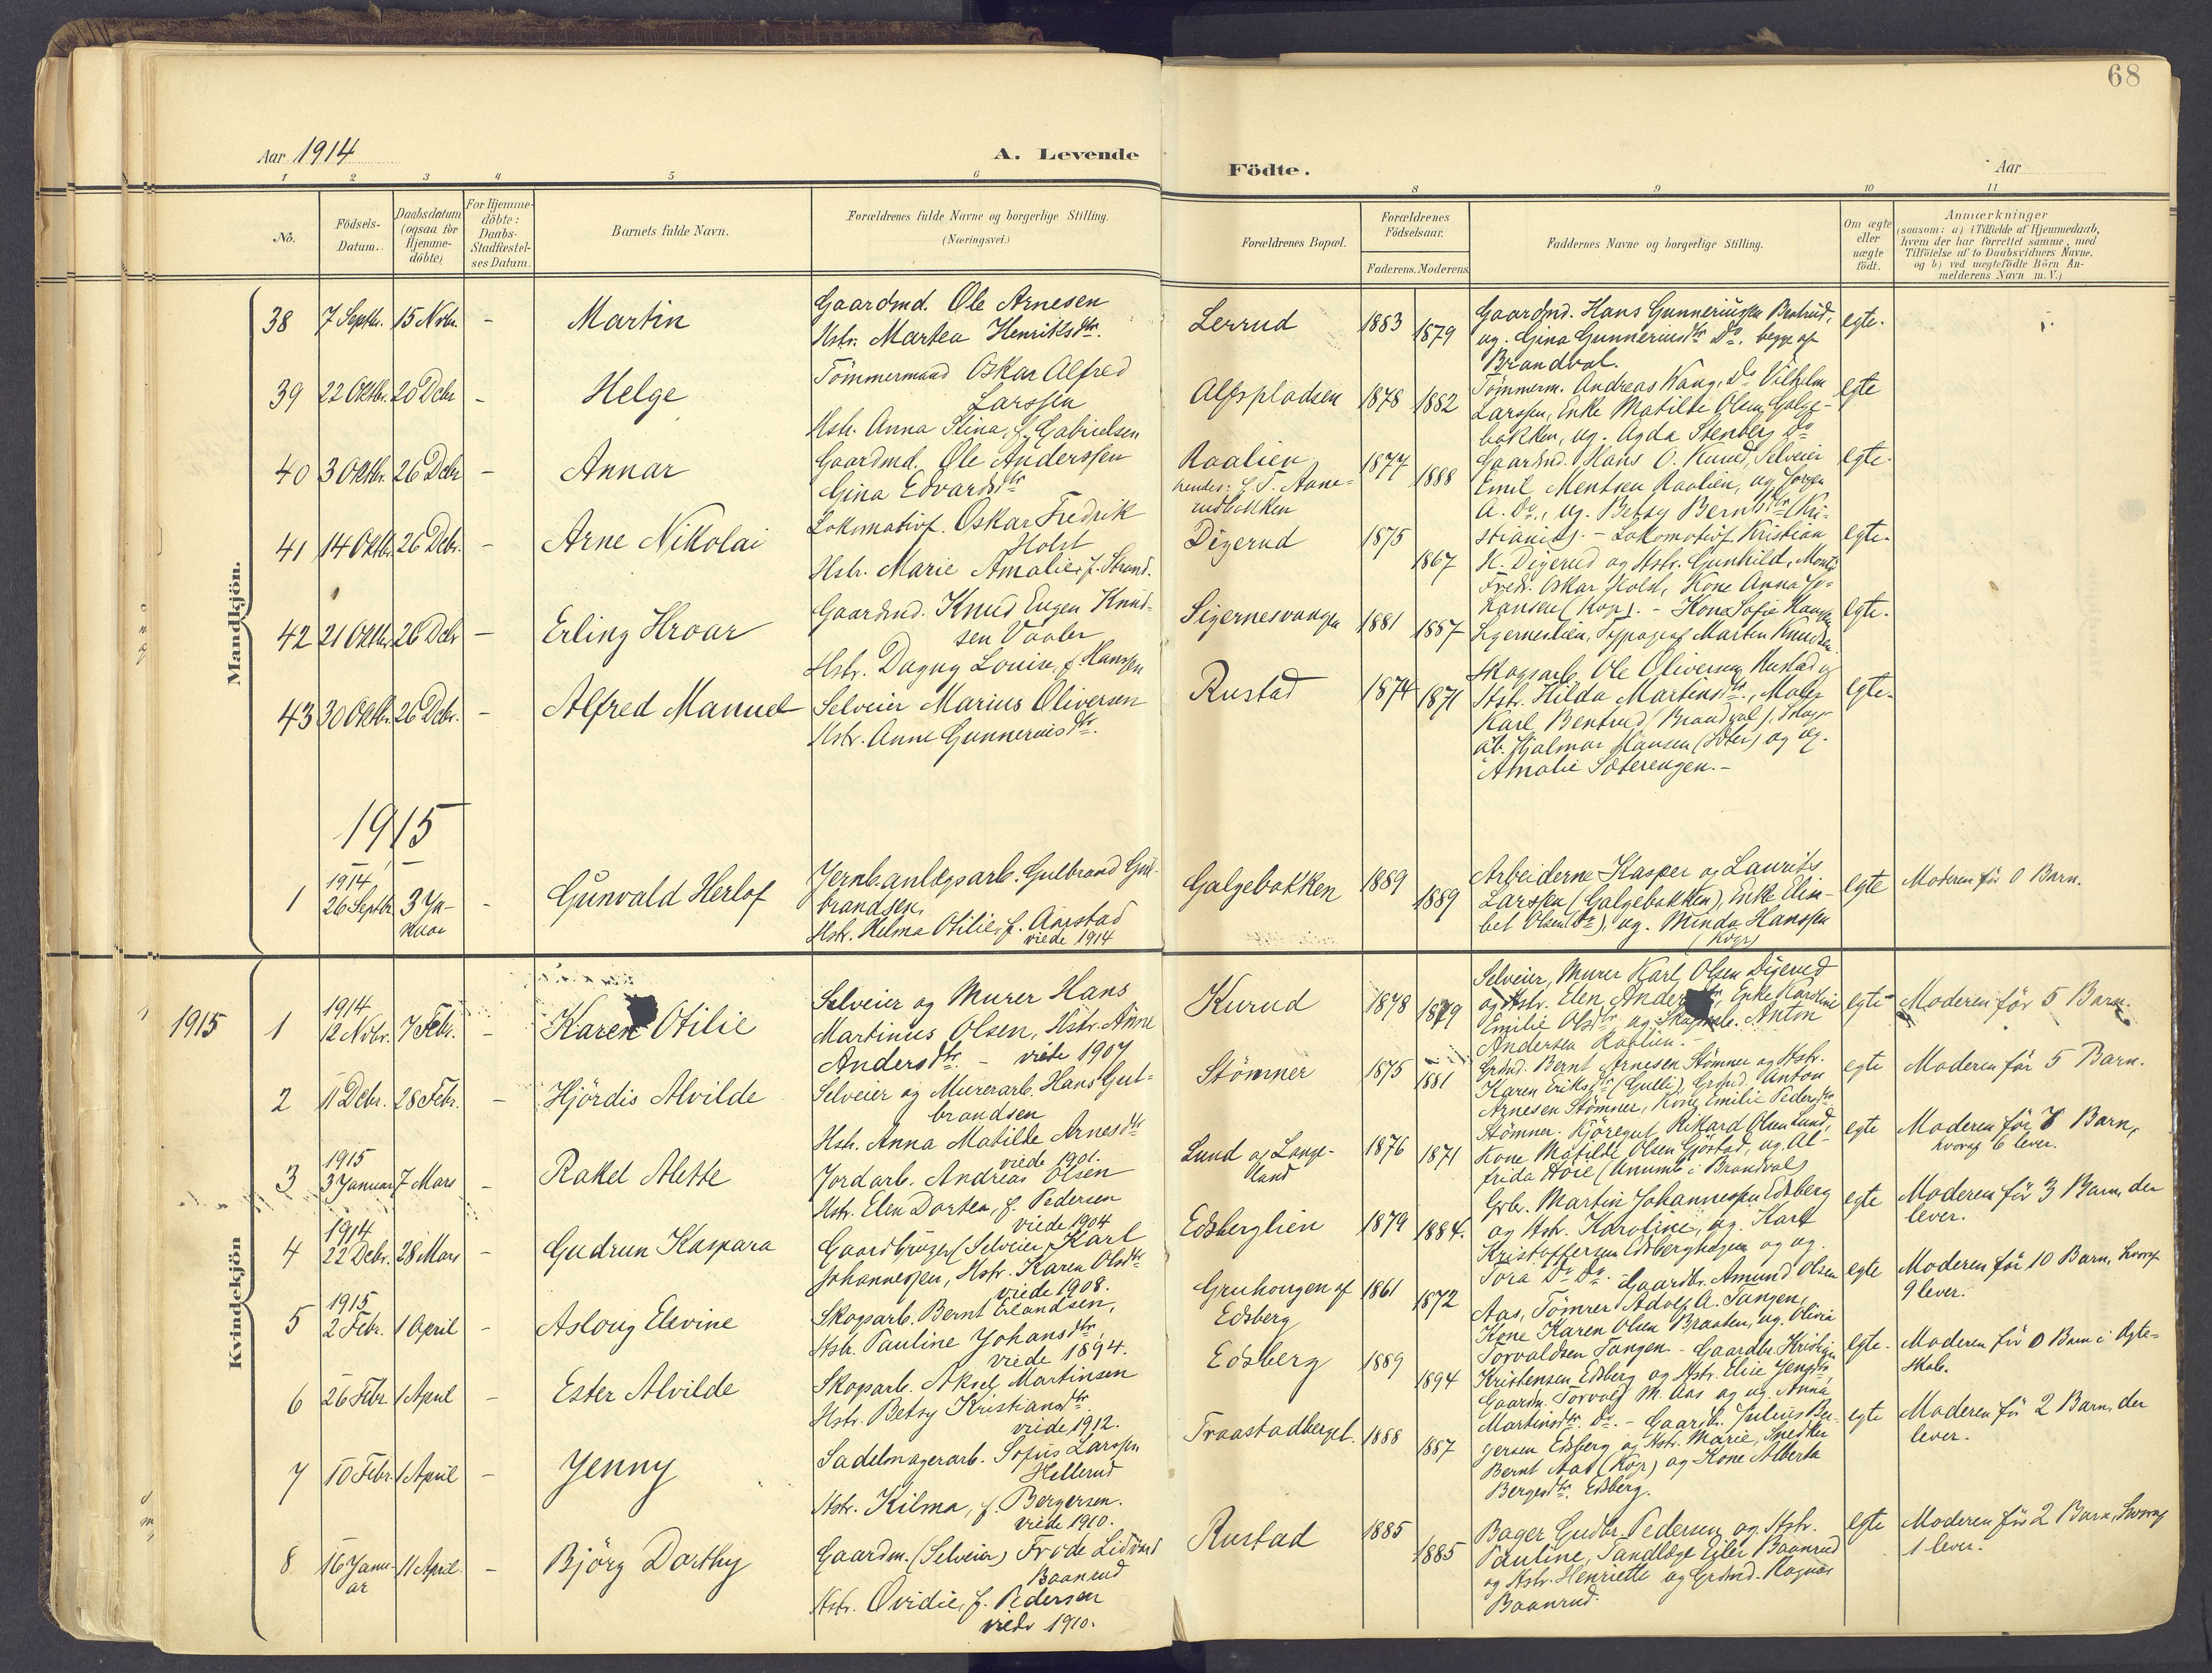 68
Aar 1914
A. Levende
Födte.
Aar
1 2 3 4 5 6 8 9 10 11
No.
Födsels-Datum.
Daabsdatum (ogsaa for Hjemme-döbte)
For Hjemme-döbte: Daabs-Stadfæstel-ses Datum.
Barnets fulde Navn.
Forældrenes fulde Navne og borgerlige Stilling. (Næringsvei.)
Forældrenes Bopæl.
Forældrenes Födselsaar.
Faderens. Moderens.
Faddernes Navne og borgerlige Stilling.
Om ægte eller uægte födt.
Anmærkninger (saasom: a) i Tilfælde af Hjemmedaab, hvem der har forrettet samme, med Tilföielse af to Daabsvidners Navne, og b) ved uægtefödte Börn An-melderens Navn m. V.)
Mandkjön.
38 7 Septbr. 15 Novbr. - Martin
Gaardmd. Ole Arnesen
Hstr. Martea Henriksdtr.
Lerrud 1883 1879
Gaardmd. Hans Gunneriussen Bentrud,
ug. Gina Gunneriusdtr. Do, begge af
Brandval.
egte.
39 22 Oktbr. 20 Debr -
Helge
Tömmermand Oskar Alfred
Larssen
Hstr. Anna Stina, f. Gabrielsen
Alfspladsen 1878 1882
Tömmerm. Andreas Wang, Do Vilhelm
Larssen, Enke Matilde Olsen Galge-
bakken, ug. Agda Stenberg Do
egte
40 3 Oktbr. 26 Debr -
Annar
Gaardmd. Ole Anderssen
Gina Edvardsdtr
Raalien 1877 1888
Gaardmd. Hans O. Kurud, Selveier
Emil Mentsen Raalien, ug. Jörgen
A. Do., ug. Betsy Berntsdtr (Kri-
egte.
41 14 Oktbr. 26 Debr. -
Arne Nikolai
Lokomotivf. Oskar Fredrik
Holst
Hstr. Marie Amalie, f. Strand.
Digerud 1875 1867
stiania). - Lokomotivf. Kristian
K. Digerud og Hstr. Gunhild, Montör
Fredr. Oskar Holst, Kone Anna Jo-
hansen (Kgvr). - Kone Sofie Haugen
egte.
42 21 Oktbr 26 Debr -
Erling Hroar
Gaardmd. Knud Eugen Knud-
sen Vaaler
Hstr. Dagny Louise, f. Hanssen
Sigernesvangen 1881 1887
Sigerneslien, Typograf Marten Knudsen.
egte.
43 30 Oktbr. 26 Debr. -
Alfred Manuel
Selveier Marius Oliversen
Hstr. Anne Gunneriusdtr.
Rustad 1874 1871
Skogsarb. Ole Oliversen Rustad og
Hstr. Hilda Martinsdtr., Maler
Karl Bentrud (Brandval), Skogs-
arb. Hjalmar Hansen (Sæter) og ug.
Amalie Sæterengen.-
egte.
1915
1 1914 26 Septbr 3 Ja-nuar -
Gunvald Herlof
Jernb.anlægsarb. Gulbrand Gul-
brandsen,
Hstr. Helma Otilie, f. Aarstad
viede 1914
Galgebakken 1889 1889
Arbeiderne Kasper og Laurits
Larssen (Galgebakken), Enke Elisa-
bet Olsen (Do), ug. Minda Hanssen
(Kvgr)
egte
Moderen för 0 Barn.
Kvindekjön
1915
1 1914 12 Novbr. 7 Febr. -
Karen Otilie
Selveier og Murer Hans
Martinius Olsen, Hstr. Anne
Andersdtr. - viede 1907
Kurud 1878 1879
Selveier, Murer Karl Olsen Digerud
og Hstr. Elen Anders dtr, Enke Karoline
Emilie Olsdtr og Skogsarb. Anton
Andersen Raalien.-
egte
Moderen för 5 Barn.
2 11 Debr. 28 Febr. -
Hjördis Alvilde
Selveier og Murerarb. Hans Gul-
brandsen
Hstr. Anna Matilde Arnesdtr
viede 1901.
Stömner 1875 1881
Grdmd. Bernt Arnesen Stömner og Hstr.
Karen Eriksdtr (Gulli), Grdmd. Anton
Arnesen Stömner, Kone Emilie Pedersdtr
Stömner.
egte
Moderen för 5 Barn.
3 1915 3 Januar 7 Mars -
Rakel Alette
Jordarb. Andreas Olsen
Hstr. Elen Dortea, f. Pedersen
viede 1904
Lund og Lange-
land 1876 1871
Kjöregut Rikard Olsen Lund,
Kone Matilde Olsen Gjöstad, ug. Al-
frida Höie (Anumb i Brandval)
egte
Moderen för 7 Barn,
hvoraf 6 lever.
4 1914 22 Debr. 28 Mars -
Gudrun Kaspara
Gaardbruger (Selveier) Karl
Johannessen, Hstr. Karen Olsdtr
viede 1908.
Edsberglien 1879 1884.
Grbr. Martin Johannessen Edsberg
og Hstr. Karoline, ug. Karl
Kristoffersen Edsberghagen og ug.
Tora Do Do.
egte
Moderen för 3 Barn, der
lever.
5 1915 2 Febr. 1 April -
Aslaug Elevine
Skogsarb. Bernt Erlandsen,
Hstr. Pauline Johansdtr,
viede 1894.
Gruhaugen af
Edsberg 1861 1872
Gaardbr. Amund Olsen
Aas, Tömrer Adolf A. Tangen,
Kone Karen Olsen Braaten, ug. Olivia
Torvaldsen Tangen.
egte
Moderen för 10 Barn, hvoraf
9 lever.
6 26 Febr. 1 April -
Ester Alvilde
Skogsarb. Aksel Martinsen
Hstr. Betsy Kristiansdtr.
viede 1912.
Edsberg 1889 1894
- Gaardbr. Kristian
Kristensen Edsberg og Hstr. Elise Jensdtr,
Gaardm. Torvald M. Aas og ug. Anna
Martinsdtr. Do.
egte.
Moderen för 0 Barn i Ægte-
skab.
7 10 Febr. 1 April -
Jenny
Sadelmagerarb. Sofus Larssen
Hellerud
Hstr. Kilma, f. Bergersen.
viede 1910.
Traastadberget. 1888 1887
- Gaardbr. Julius Ber-
gersen Edsberg og Hstr. Marie, Snedker
Bernt Aas (Kvgr) og Kone Alberta
Bergesdtr. Edsberg.
egte
Moderen för 2 Barn, der
lever.
8 16 Janu-ar 11 April. -
Björg Dorthy
Gaardm. (Selveier) Frode Lidvard
Baanrud
Hstr. Ovidie, f. Pedersen
viede 1910.
Rustad 1885 1885
Bager Gudbr. Pedersen og Hstr.
Pauline, Tandlæge Eiler Baanrud
og Hstr. Henriette og Grdmd. Ragnar
Baanrud.
egte
Moderen för 2 Barn, hvoraf
1 lever.